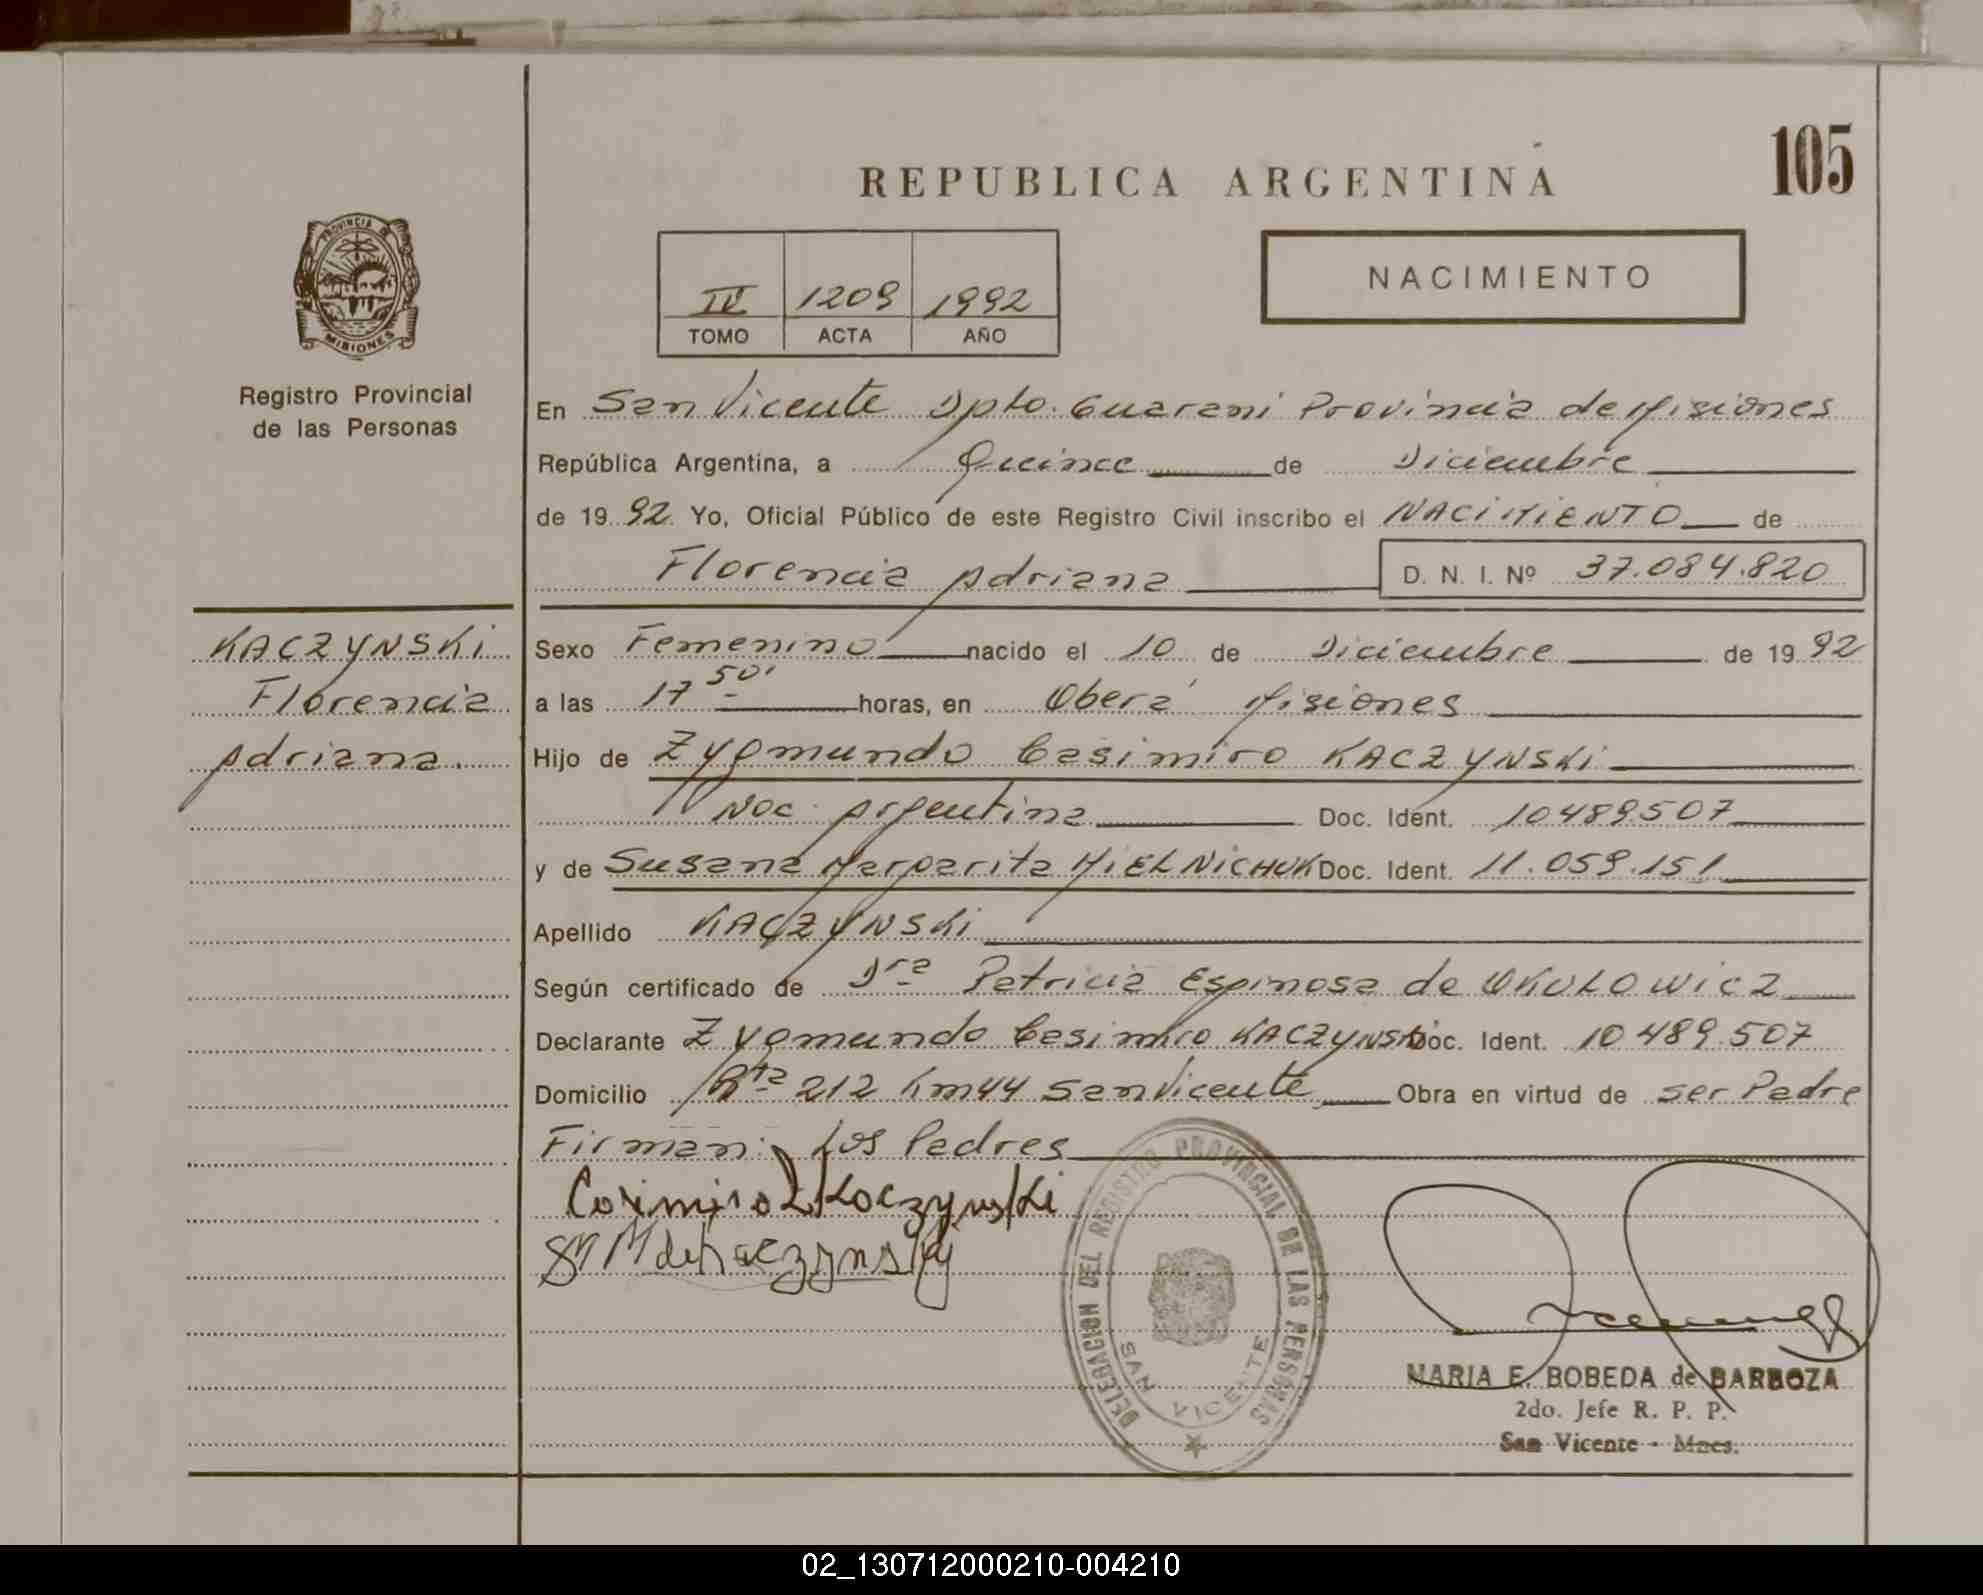 105
REPUBLICA ARGENTINA
PROVINCIA DE
MISIONES
Registro Provincial
de las Personas
IV 1209 1992
TOMO ACTA AÑO
NACIMIENTO
En San Vicente Dpto. Guarani Provincia de Misiones
República Argentina, a Quince de Diciembre
de 1992 Yo, Oficial Público de este Registro Civil inscribo el NACIMIENTO de
Florencia Adriana D. N. I. Nº 37.084.820
KACZYNSKI
Florencia
Adriana.
Sexo Femenino nacido el 10 de Diciembre de 1992
a las 17 50' horas, en Oberá Misiones
Hijo de Zygmundo Casimiro KACZYNSKI
Nac. Argentina Doc. Ident. 10489.507
y de Susana Margarita MIELNICHUK Doc. Ident. 11.059.151
Apellido KACZYNSKI
Según certificado de Dra Patricia Espinosa de OKULOWICZ
Declarante Zygmundo Casimiro KACZYNSKI Doc. Ident. 10489.507
Domicilio Rta 212 Km 44 San Vicente Obra en virtud de ser Padre
Firman: Los Padres
Casimiro Z Kaczynski
SM M de Kaczynski
DELEGACION DEL REGISTRO PROVINCIAL DE LAS PERSONAS
SAN VICENTE
MARIA E. BOBEDA de BARBOZA
2do. Jefe R. P. P.
San Vicente - Mnes.
02_130712000210-004210